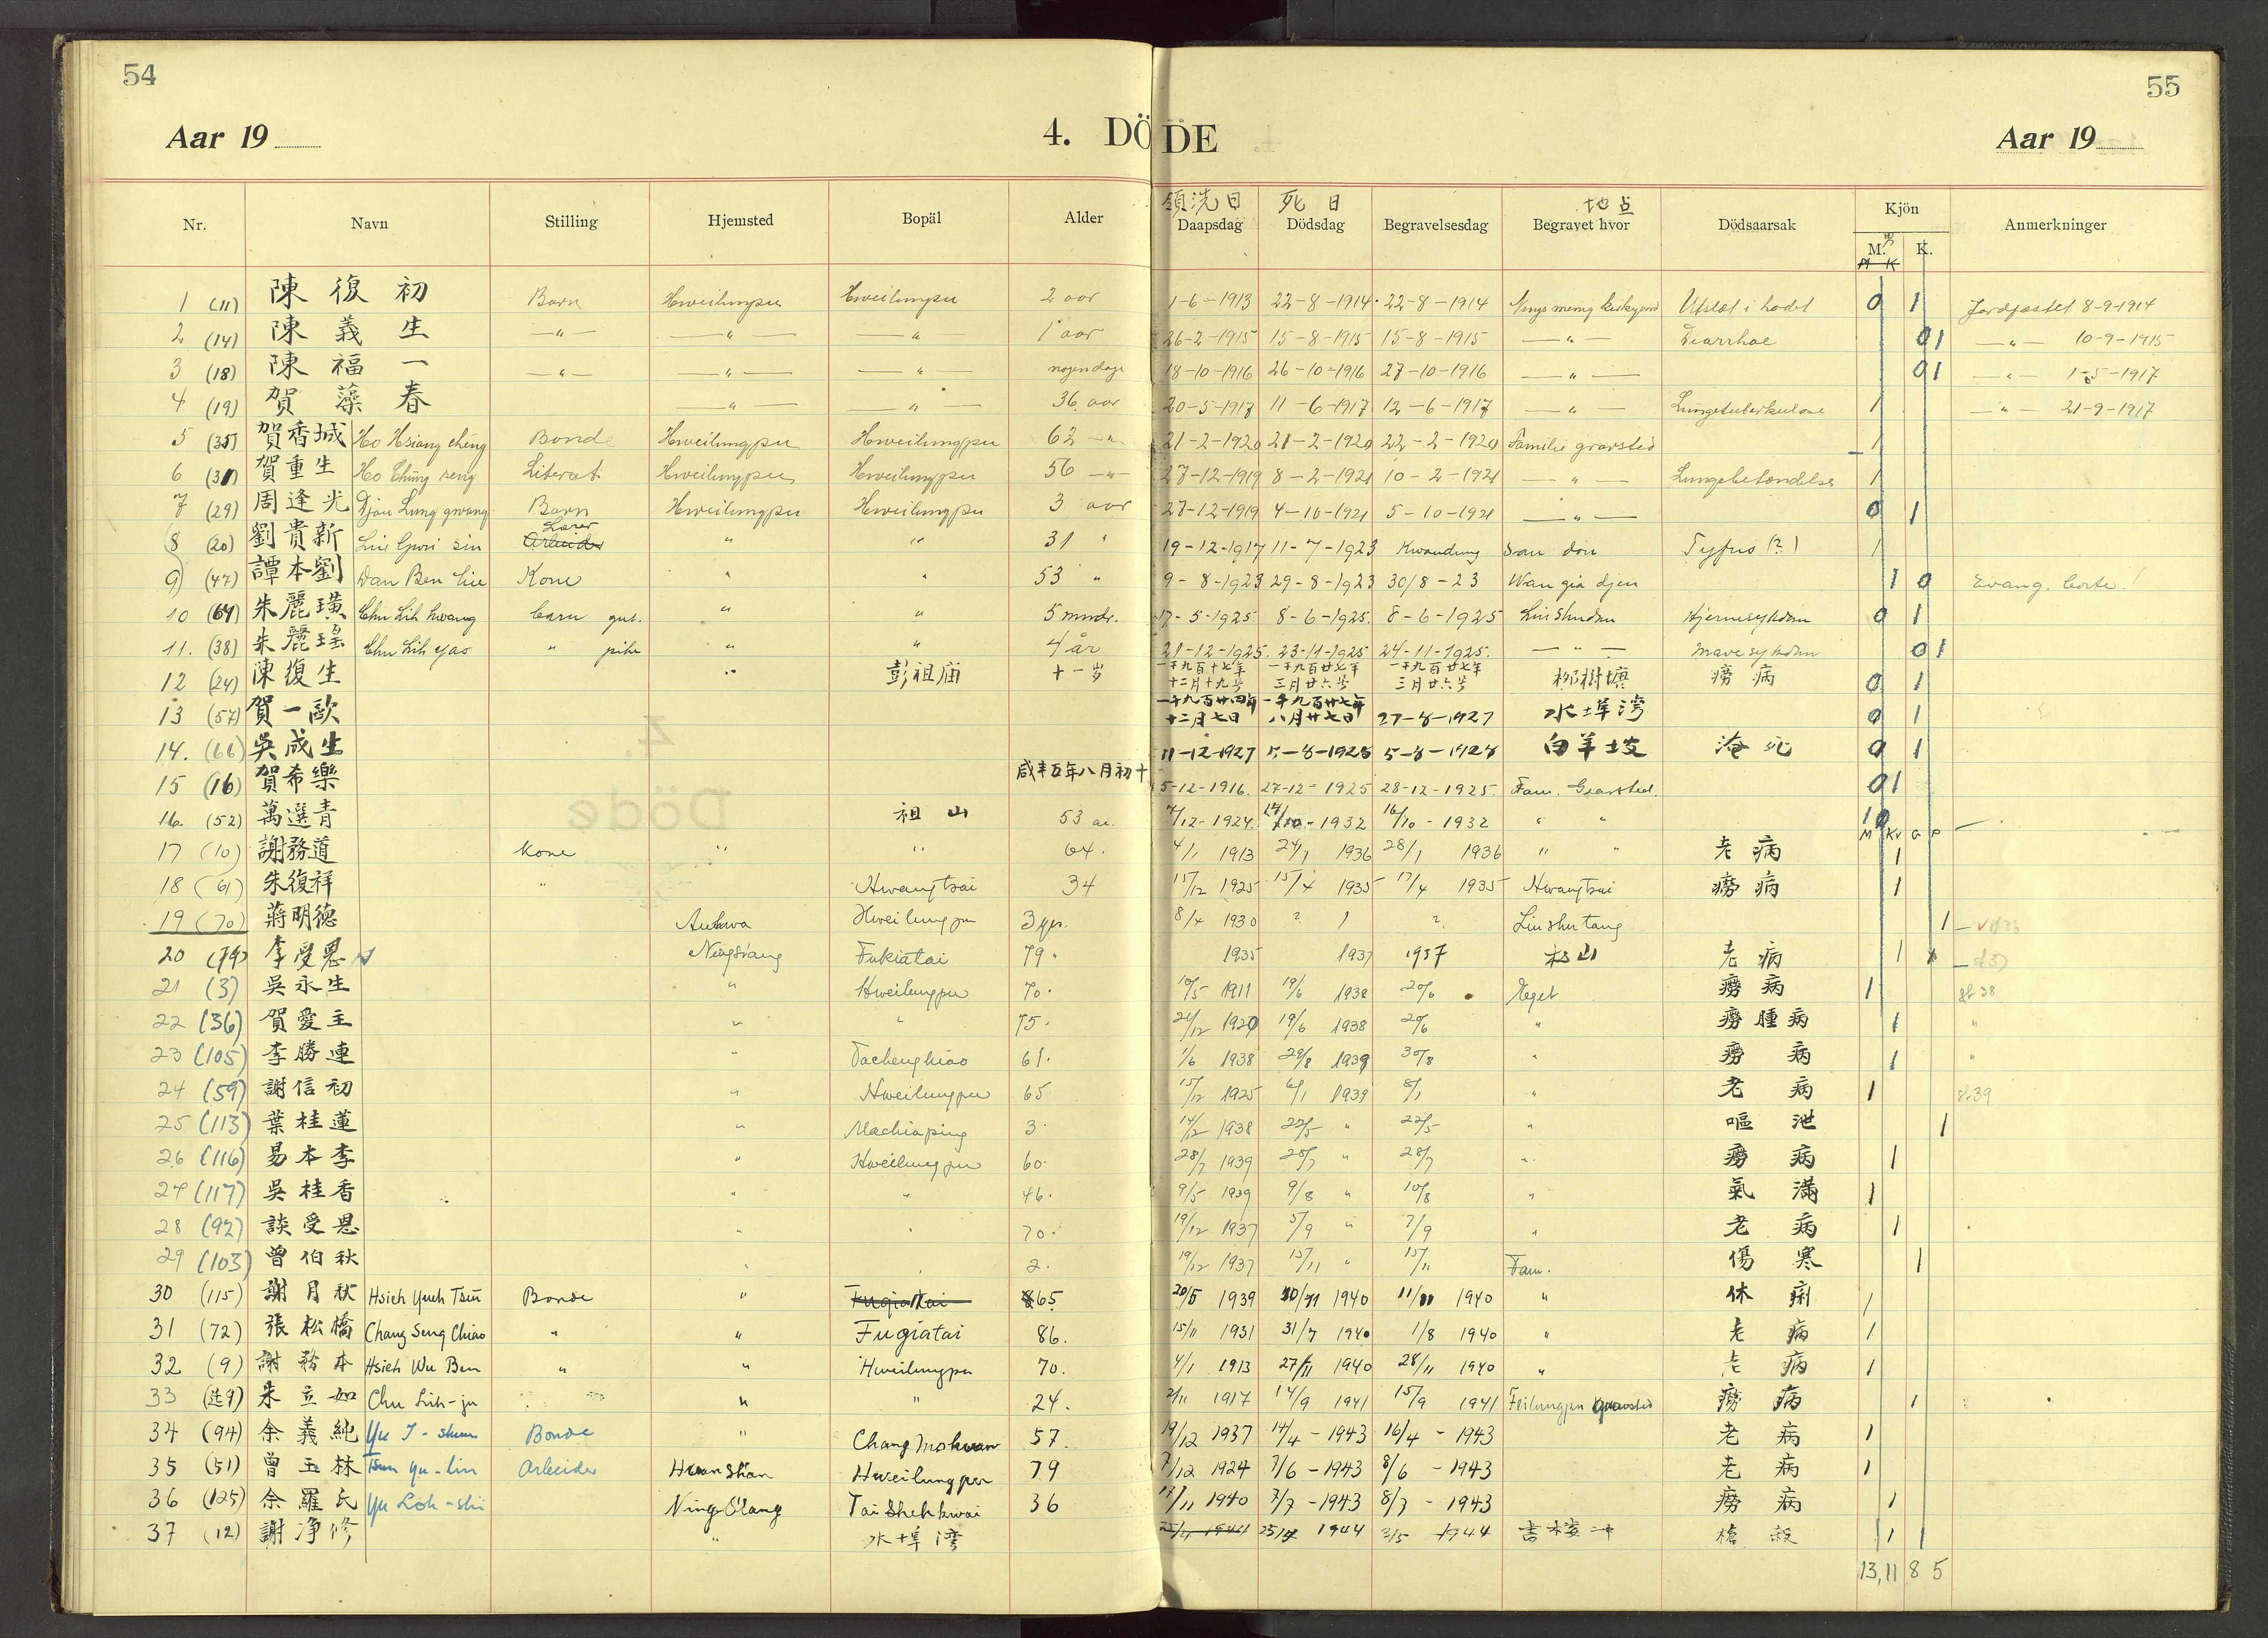 54
55
Aar 19
4. DÖDE
Aar 19
領洗日 死日 地点
Nr. Navn Stilling Hjemsted Bopäl Alder Daapsdag Dödsdag Begravelsesdag Begravet hvor Dödsaarsak Kjön Anmerkninger
男
M. K.
1 (11) 陳復初 Barn Hweilungpu Hweilungpu 2 aar 1-6-1913 22-8-1914 22-8-1914 Utslæt i hodet 0 1 Jordfæstet 8-9-1914
2 (14) 陳義生 —"— —"— —"— 1 aar 26-2-1915 15-8-1915 15-8-1915 —"— Diarrhoe 01 —"— 10-9-1915
3 (18) 陳福一 —"— —"— —"— nogen dage 18-10-1916 26-10-1916 27-10-1916 —"— 01 —"— 1917
4 (19) 賀藻春 —"— —"— 36 aar 20-5-1917 11-6-1917 12-6-1917 —"— Lungetuberkulose 1 —"— 21-9-1917
5 (35) 賀香城 Ho Hsiang cheng Bonde Hweilungpu Hweilungpu 62 —"— 21-2-1920 21-2-1920 22-2-1920 Familie gravsted 1
6 (31) 賀重生 Ho Chung seng Literat Hweilungpu Hweilungpu 56 —"— 27-12-1919 8-2-1921 10-2-1921 —"— Lungebetændelse 1
7 (29) 周逢光 Djou Lung gwang Barn Hweilungpu Hweilungpu 3 aar 27-12-1919 4-10-1921 5-10-1921 —"— 0 1
8 (20) 劉貴新 Liu Gwei sin Lærer Arbeider " " 31 " 19-12-1917 11-7-1923 Kwandung san don Tyfus (?) 1
9 (47) 譚本劉 Dan Ben Liu Kone " " 53 " 9-8-1923 29-8-1923 30/8-23 Wan gia djen 1 0 Evang. !
10 (64) 朱麗璜 Chu Lih hwang barn gut. " " 5 mndr. 17-5-1925 8-6-1925. 8-6-1925 Liu Shudan Hjernesykdom 0 1
11. (38) 朱麗瑤 Chu Lih yao " pike " " 4 år 21-12-1925. 23-11-1925 24-11-1925. —"— mavesykdom 01
12 (24) 陳復生 " 彭祖庙 十一岁 一千九百十七年十二月十九号 一千九百廿七年三月廿六号 一千九百廿七年三月廿六号 柳樹塘 癆病 0 1
13 (57) 賀一歐 一千九百廿四年十二月七日 一千九百廿七年八月廿七日 27-8-1927 水埠湾 0 1
14. (66) 吳成生 11-12-1927 5-8-1928 5-8-1928 白羊坡 淹死 0 1
15 (16) 賀希樂 咸丰五年八月初十 5-12-1916. 27-12-1925 28-12-1925. Fam. Gravsted. 01
16. (52) 萬選青 祖山 53 aa. 7/12-1924. 14/10-1932 16/10-1932 " " 10
M Kv G P
17 (10) 謝務道 kone " " 64. 4/1 1913 24/1 1936 28/1 1936 " " 老病 1
18 (61) 朱復祥 " Hwangtsai 34 15/12 1925 15/4 1935 17/4 1935 Hwangtsai 癆病 1
19 (70) 蔣明德 Anhwa Hweilungpu 8/4 1930 ? ? Liu shu tang 1
20 (79) 李受恩 Ningsiang Fukiatai 79. 1935 1937 1937 杉山 老病 1
21 (3) 吳永生 " Hweilungpu 70. 10/5 1911 19/6 1938 20/6 Eget 癆病 1 38
22 (36) 賀愛主 " " 75. 21/12 1920 19/6 1938 20/6 " 癆腫病 1 "
23 (105) 李勝連 " Tachenghiao 61. 1/6 1938 29/8 1939 30/8 " 癆病 1 "
24 (59) 謝信初 " Hweilungpu 65 15/12 1925 6/1 1939 8/1 " 老病 1 39
25 (113) 葉桂蓮 " Machiaping 3. 14/12 1938 22/5 " 22/5 " 嘔泄 1
26 (116) 易本李 " Hweilungpu 60. 28/7 1939 28/7 " 28/7 " 癆病 1
27 (117) 吳桂香 " " 46. 9/5 1939 9/8 " 10/8 " 氣滿 1
28 (92) 談受恩 " " 70. 19/12 1937 5/9 " 7/9 " 老病 1
29 (103) 曾伯秋 " " 2. 19/12 1937 15/11 " 15/11 Fam. 傷寒 1
30 (115) 謝月秋 Hsieh Yueh Tsiu Bonde " Fugiatai 65 20/5 1939 10/11 1940 11/11 1940 " 休痢 1
31 (72) 張松橋 Chang Seng Chiao " " Fugiatai 86. 15/11 1931 31/7 1940 1/8 1940 " 老病 1
32 (9) 謝務本 Hsieh Wu Ben " " Hweilungpu 70. 4/1 1913 27/11 1940 28/11 1940 " 老病 1
33 朱立如 Chu Lih-ju " " 24. 2/11 1917 14/9 1941 15/9 1941 Feilungpu gravsted 癆病 1
34 (94) 余義純 Yu I-shun Bonde " Chang Mokwan 57. 19/12 1937 14/4-1943 16/4-1943 老病 1
35 (51) 曾玉林 Tsen Yu-lin Arbeider Hwan Shan Hweilungpu 79 7/12 1924 7/6-1943 8/6-1943 老病 1
36 (125) 余羅氏 Yu Loh-shi Ning Siang Tai Sheh kwai 36 17/11 1940 7/7-1943 8/7-1943 癆病 1
37 (12) 謝净修 " 水埠湾 25/4 1944 25/4 1944 3/5 1944 書楼冲 槍殺 1
13, 11 8 5